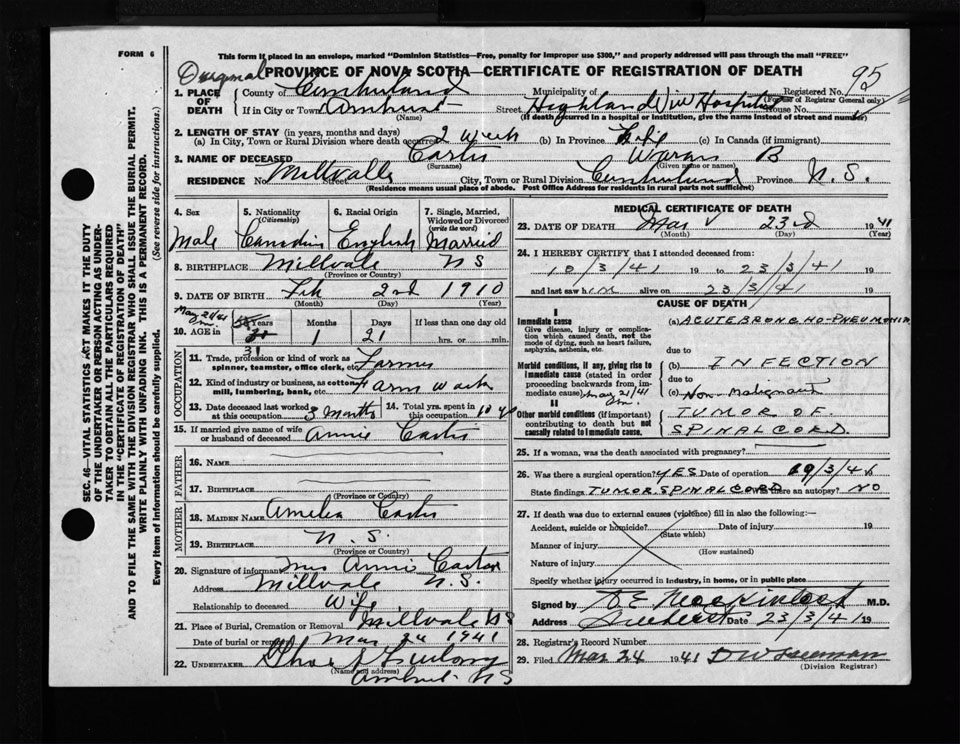 FORM 6
This form if placed in an envelope, marked "Dominion Statistics—Free, penalty for improper use $300," and properly addressed will pass through the mail "FREE"
Original PROVINCE OF NOVA SCOTIA—CERTIFICATE OF REGISTRATION OF DEATH
95
1. PLACE OF DEATH County of Cumberland Municipality of Registered No.
(For use of Registrar General only)
If in City or Town Amherst Street Highland View Hospital House No.
(Name) (If death occurred in a hospital or institution, give the name instead of street and number)
2. LENGTH OF STAY (in years, months and days)
(a) In City, Town or Rural Division where death occurred 2 week (b) In Province Life (c) In Canada (if immigrant)
3. NAME OF DECEASED B
(Surname) (Given name or names)
RESIDENCE No. Millvale Street City, Town or Rural Division Cumberland Province N.S.
(Residence means usual place of abode. Post Office Address for residents in rural parts not sufficient)
4. Sex 5. Nationality (Citizenship) 6. Racial Origin 7. Single, Married, Widowed or Divorced (write the word)
Male Canadian English Married
8. BIRTHPLACE Millvale NS
(Province or Country)
9. DATE OF BIRTH Feb 2nd 1910
(Month) (Day) (Year)
May 21/41
10. AGE in Years Months Days If less than one day old
31 1 21 hrs. or min.
OCCUPATION
11. Trade, profession or kind of work as spinner, teamster, office clerk, etc. Farmer
12. Kind of industry or business, as cotton mill, lumbering, bank, etc. Farm Work
13. Date deceased last worked at this occupation 3 months 14. Total yrs. spent in this occupation 10 yr
15. If married give name of wife or husband of deceased Annie
FATHER
16. Name
17. Birthplace
(Province or Country)
MOTHER
18. Maiden Name Amelia
19. Birthplace N.S.
(Province or Country)
20. Signature of informant Mrs Annie
Address Millvale N.S.
Relationship to deceased Wife
21. Place of Burial, Cremation or Removal Millvale NS
Date of burial or removal Mar 1941
22. UNDERTAKER
(Name and address)
Amherst NS
MEDICAL CERTIFICATE OF DEATH
23. DATE OF DEATH Mar 23rd 1941
(Month) (Day) (Year)
24. I HEREBY CERTIFY that I attended deceased from:
10/3/41 19 to 23/3/41 19
and last saw him alive on 23/3/41 19
CAUSE OF DEATH
I
Immediate cause
Give disease, injury or complication which caused death, not the mode of dying, such as heart failure, asphyxia, asthenia, etc.
(a) ACUTE BRONCHO-PNEUMONIA
due to
Morbid conditions, if any, giving rise to immediate cause (stated in order proceeding backwards from immediate cause)
May 21/41
(b) INFECTION
due to
(c) Non-Malignant
II
Other morbid conditions (if important) contributing to death but not causally related to immediate cause.
TUMOR OF
SPINAL CORD
25. If a woman, was the death associated with pregnancy?
26. Was there a surgical operation? YES Date of operation 19/3/41
State findings TUMOR SPINAL CORD Was there an autopsy? NO
27. If death was due to external causes (violence) fill in also the following:—
Accident, suicide or homicide? Date of injury 19
(State which)
Manner of injury
(How sustained)
Nature of injury
Specify whether injury occurred in industry, in home, or in public place
Signed by M.D.
Address Amherst Date 23/3/41 19
28. Registrar's Record Number
29. Filed Mar 24 1941
(Division Registrar)
SEC. 46—VITAL STATISTICS ACT MAKES IT THE DUTY OF THE UNDERTAKER OR PERSON ACTING AS UNDERTAKER TO OBTAIN ALL THE PARTICULARS REQUIRED IN THE "CERTIFICATE OF REGISTRATION OF DEATH"
AND TO FILE THE SAME WITH THE DIVISION REGISTRAR WHO SHALL ISSUE THE BURIAL PERMIT.
WRITE PLAINLY WITH UNFADING INK. THIS IS A PERMANENT RECORD.
Every item of information should be carefully supplied. (See reverse side for instructions.)